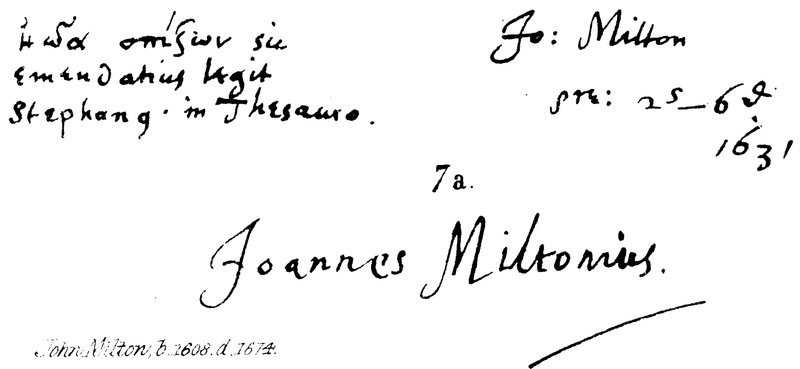 sic
emendatius legit
Stephanus. in Thesauro.
Jo: Milton
pre: 2s–6d
1631
7a.
Joannes Miltonius.
John Milton, b. 1608. d. 1674.